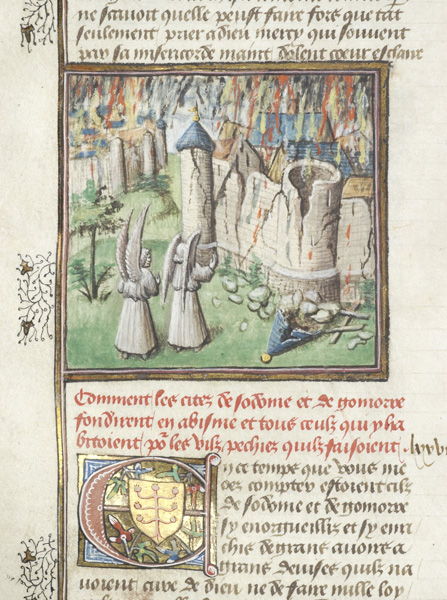 ne scavoit quelle peust faire fors que tant
seulement prier a dieu mercy qui souvent
par sa misericorde maint dolent coeur esclaire
Comment les citez de sodome et de gomorre
fondirent en abisme et tous ceulx qui y ha
bitoient / po les vilz pechiez quilz faisoient
En ce temps que vous me
oez compter estoient cilz
de sodome et de gomorre
sy enorgueillis et sy enri
chis de grans avoirs a
grans devises quilz na
voient cure de dieu ne de faire nulle loy